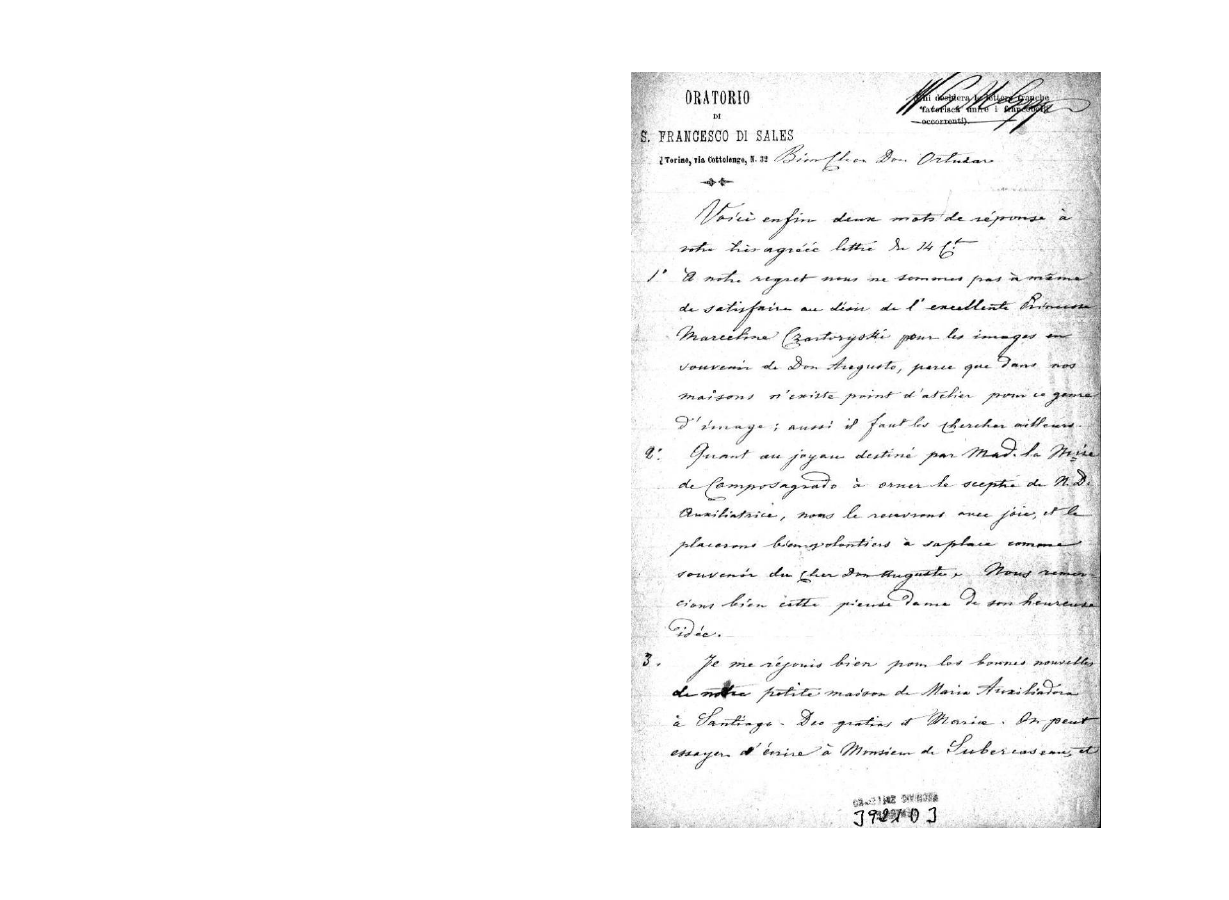 ORATORIO
DI
S. FRANCESCO DI SALES
Torino, via Cottolengo, N. 32
desidera lettere franche
favorisca unire i francobolli
occorrenti).
Bien Cher Don Ortuzar
Voici enfin deux mots de réponse à
votre très agréée lettre du 14 Ct.
1° A notre regret nous ne sommes pas à même
de satisfaire au désir de l'excellente Princesse
Marceline Czartoryski pour les images en
souvenir de Don Auguste, parce que dans nos
maisons n'existe point d'atelier pour ce genre
d'image; aussi il faut les chercher ailleurs.
2° Quant au joyau destiné par Mad. la Mise
de Camposagrado à orner le sceptre de N. D.
Auxiliatrice, nous le recevrons avec joie, et le
placerons bien volontiers à sa place comme
souvenir du cher Don Auguste. Nous remer-
cions bien cette pieuse dame de son heureuse
idée.
3. Je me réjouis bien pour les bonnes nouvelles
de notre petite maison de Maria Auxiliadora
à Santiago. Deo gratias et Mariæ. On peut
essayer d'écrire à Monsieur de Subercaseau, et